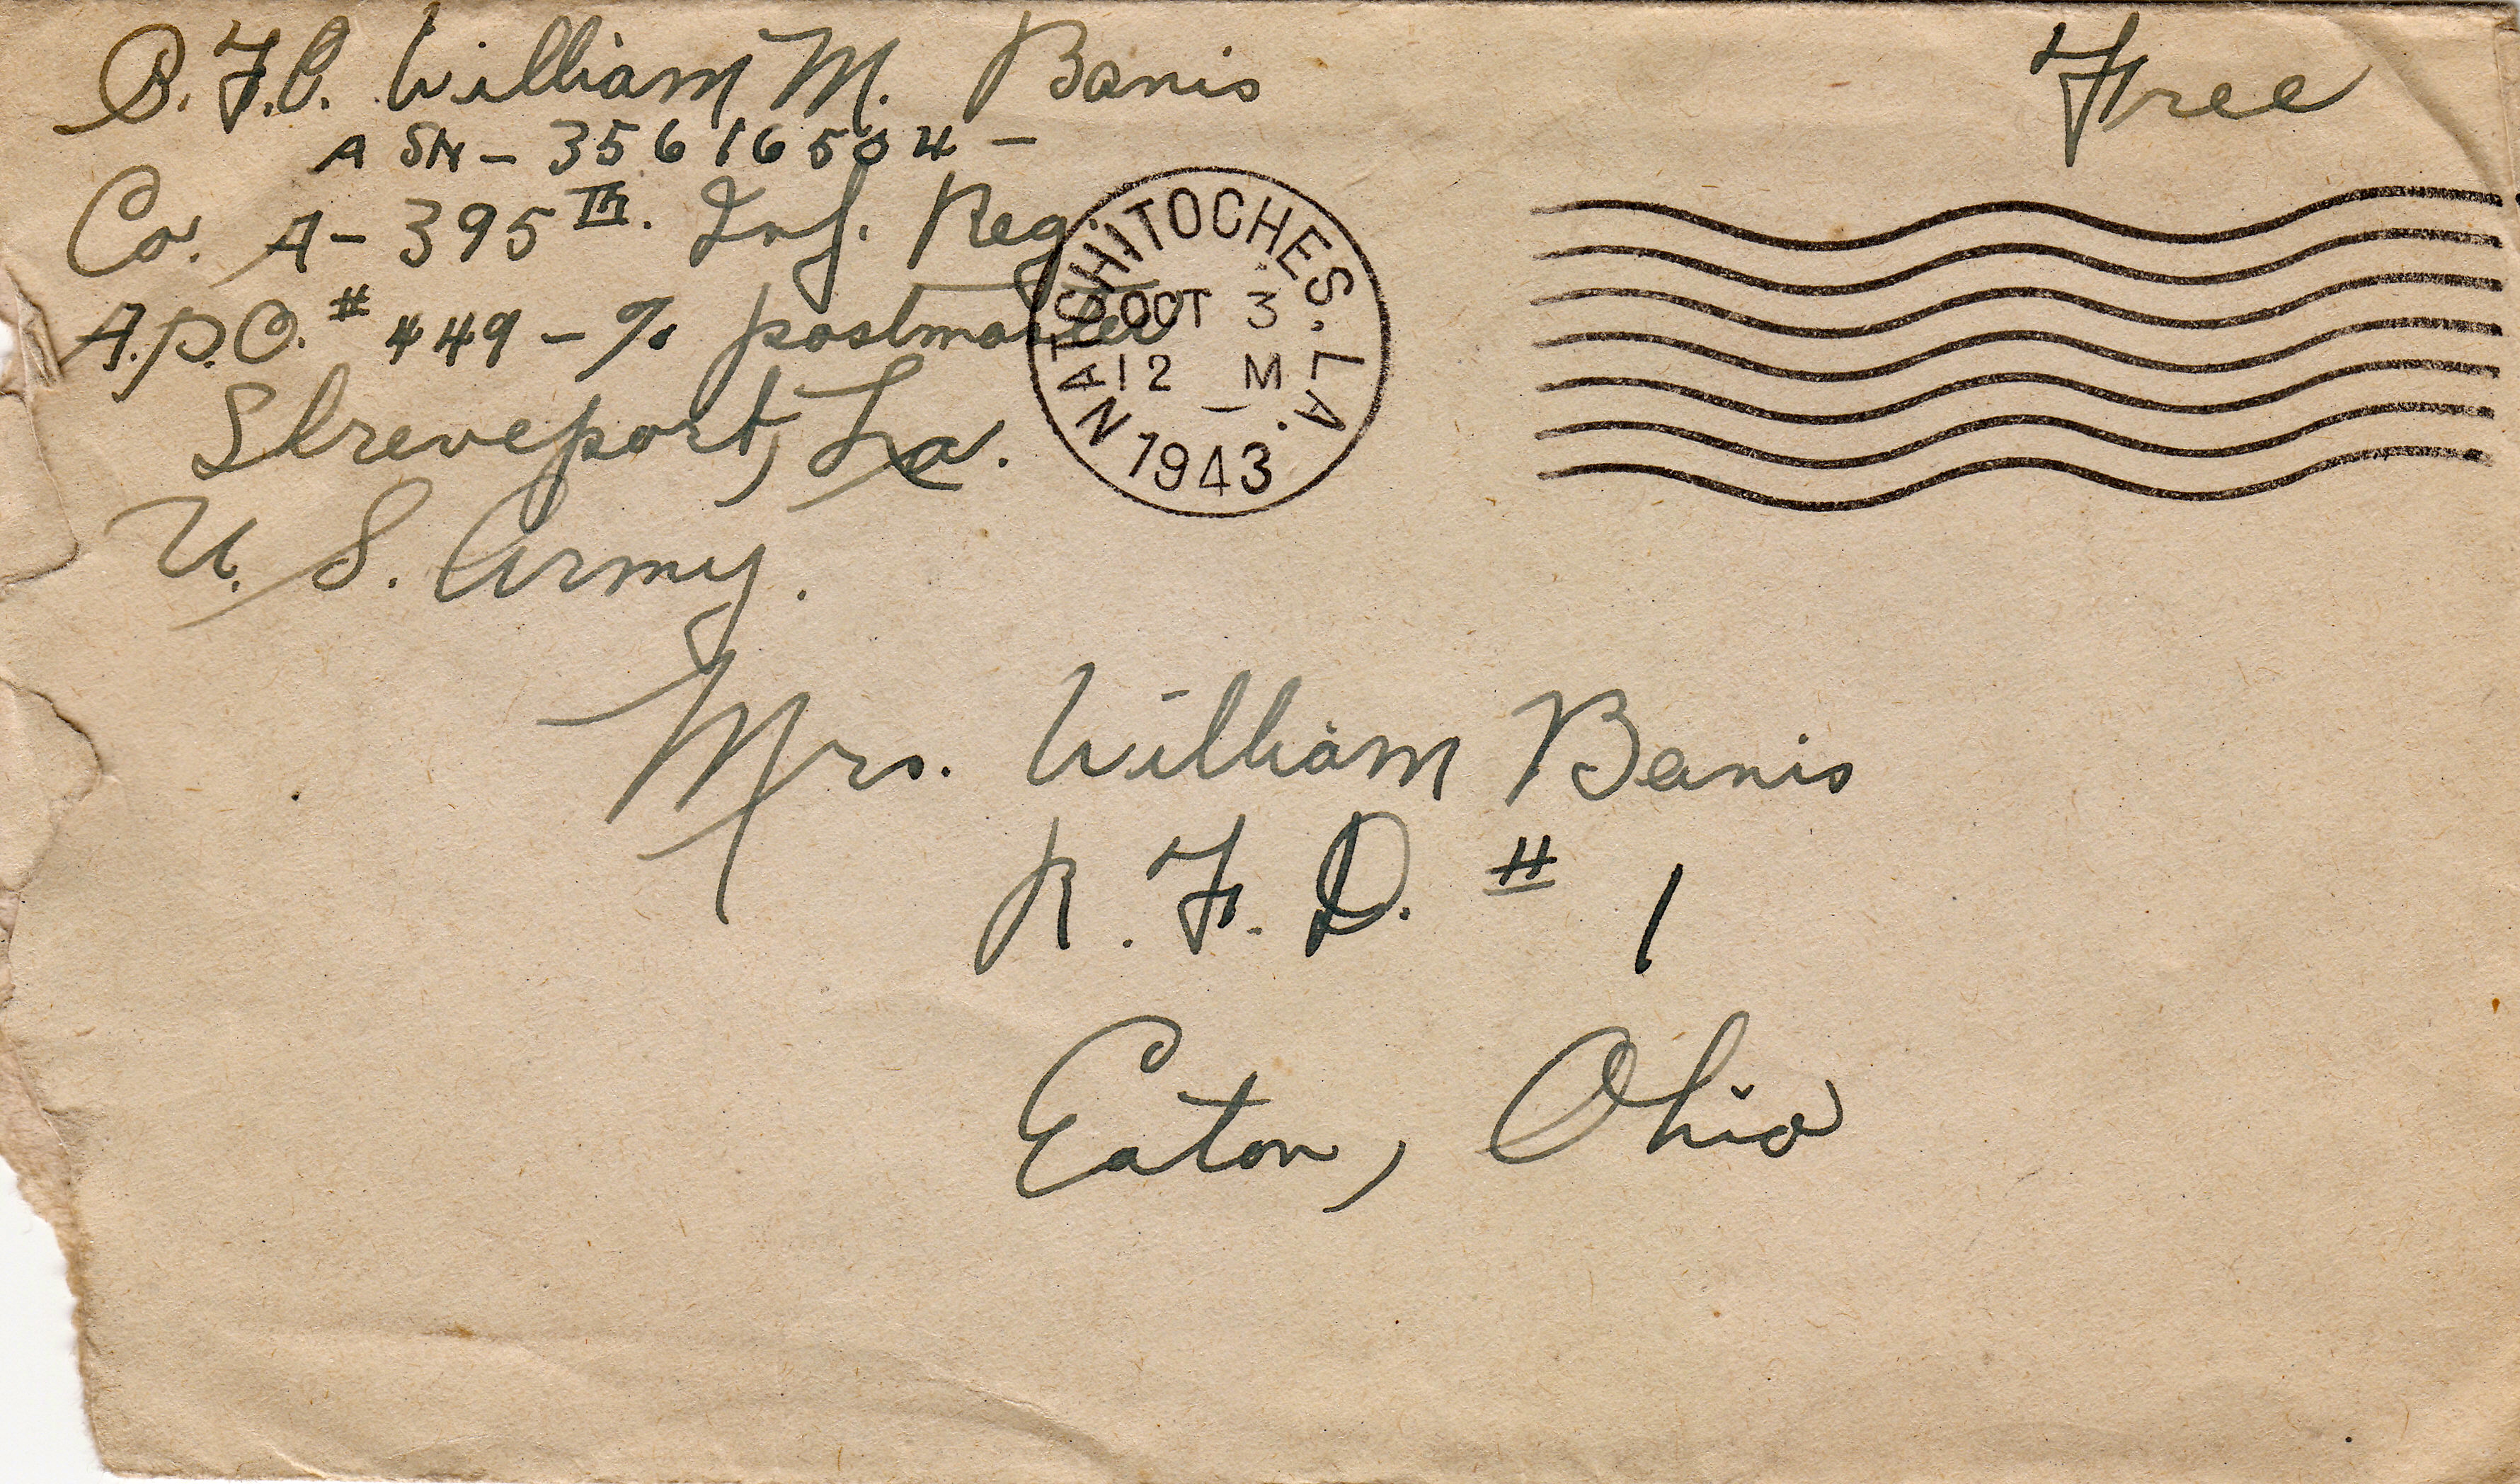 P.F.C. William M. Banis
ASN - 35616504 -
Co. A - 395TH. Inf. Reg.
A.P.O. # 449 - % postmaster
Shreveport, La.
U. S. Army.
Free
NATCHITOCHES. LA.
OCT 3
12 M
1943
Mrs. William Banis
R. F. D. # 1
Eaton, Ohio